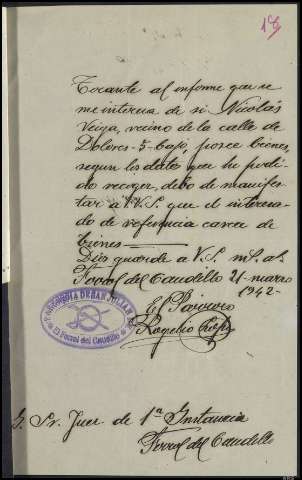 18
Tocante al informe que se
me interesa de si Nicolás
Veiga, vecino de la calle de
Dolores-5-bajo, posee bienes,
segun los datos que he podi-
do recoger, debo de manifes-
tar a V.S. que el interesa-
do de referencia carece de
bienes
Dios guarde a V.S. ms. as.
Ferrol del Caudillo 21- marzo
1942-
El Párroco
Rogelio
PARROQUIA DE SAN JULIAN
El Ferrol del Caudillo
Sr. Juez de 1ª Instancia
Ferrol del Caudillo